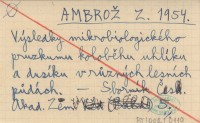 AMBROŽ Z. 1954.
Výsledky mikrobiologického
průzkumu koloběhu uhlíku
a dusíku v různých lesních
půdách. — Sborník Česk.
Akad. Zem.